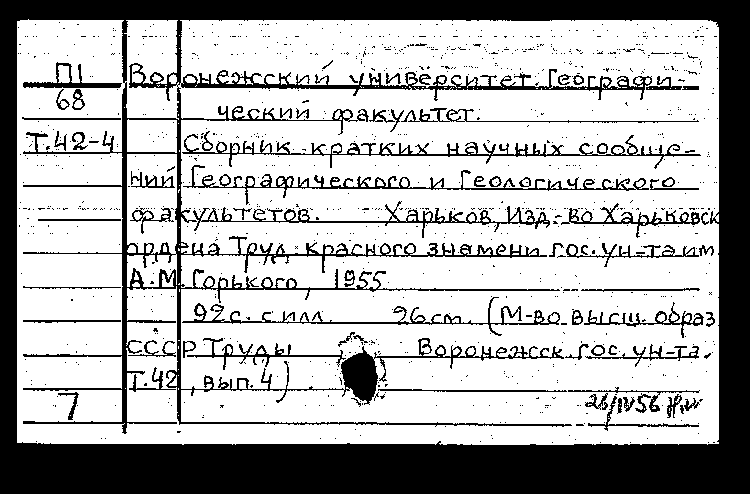 П1 Воронежский университет. Географи-
68 ческий факультет.
Т.42-4 Сборник кратких научных сообще-
ний Географического и Геологического
факультетов. Харьков, Изд-во Харьковск
ордена Труд. красного знамени гос. ун-та им.
А.М. Горького, 1955
92 с. с илл. 26 см. (М-во высш. образ
СССР Труды Воронежск. гос. ун-та.
Т.42, вып. 4)
7 26/IV 56